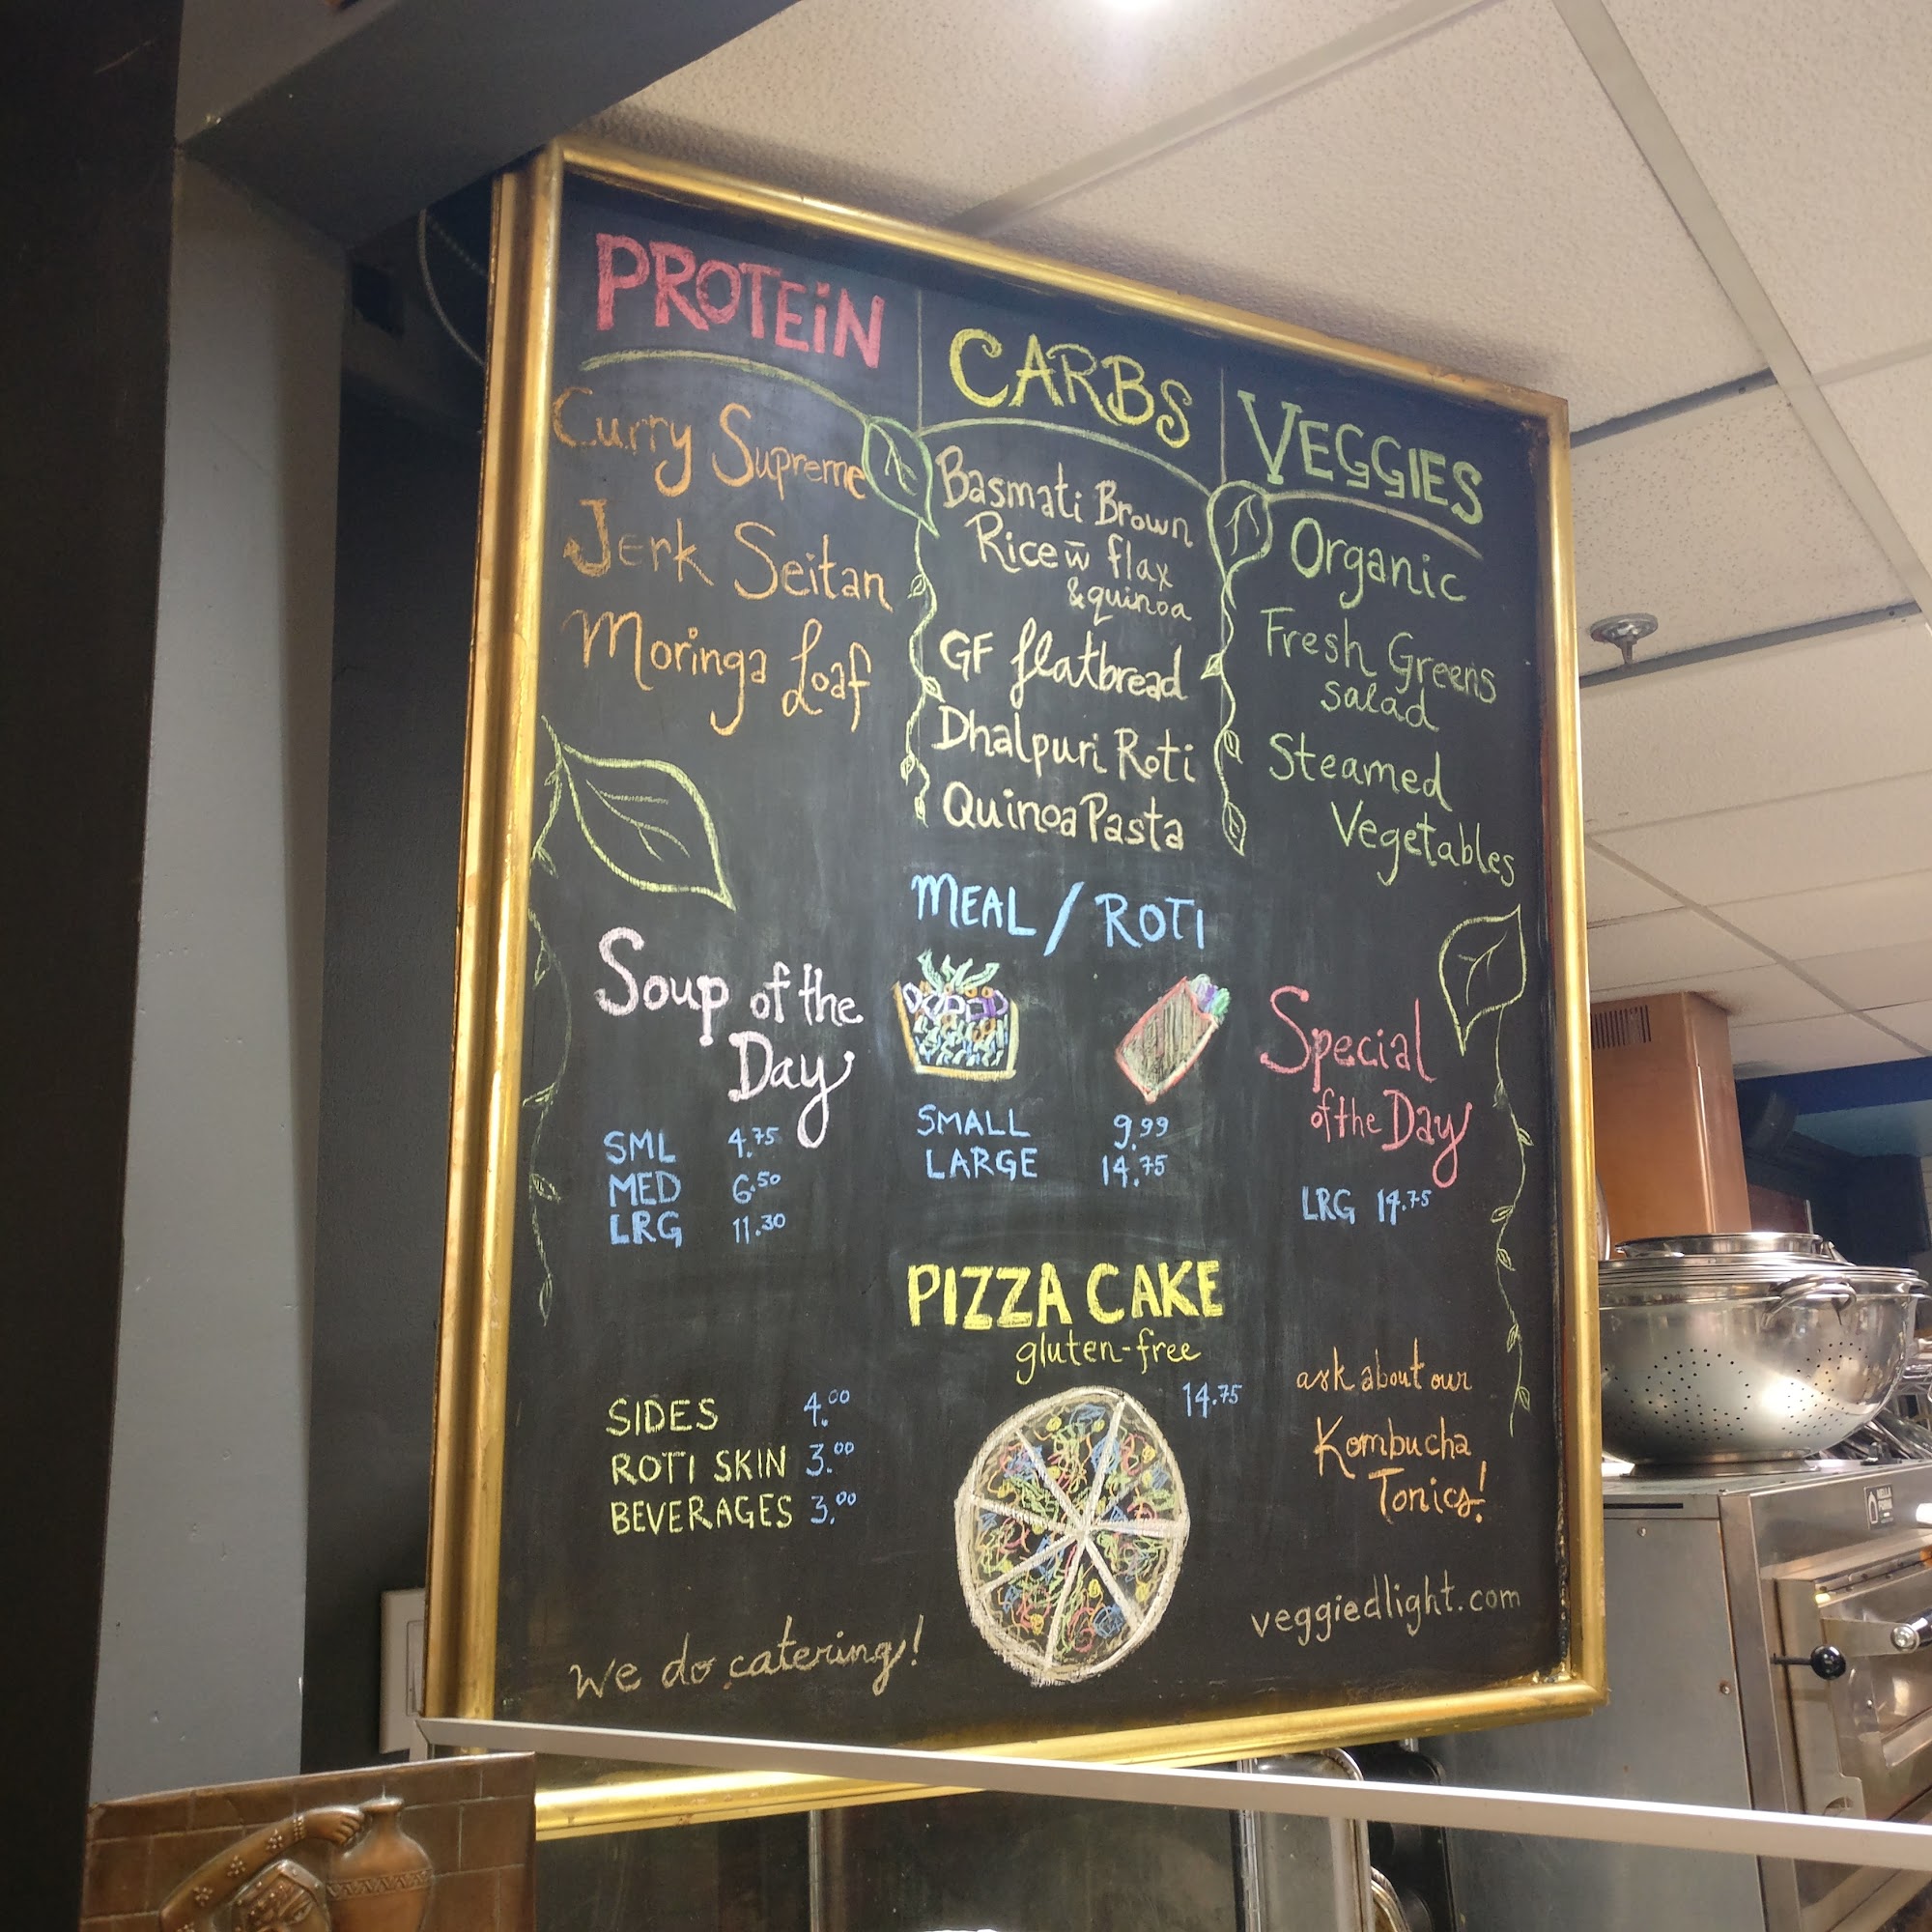 PROTEiN
Curry Supreme
Jerk Seitan
Moringa Loaf
CARBS
Basmati Brown
Rice w̄ flax
& quinoa
GF flatbread
Dhalpuri Roti
Quinoa Pasta
VEGGIES
Organic
Fresh Greens
salad
Steamed
Vegetables
Soup of the
Day
SML 4.75
MED 6.50
LRG 11.30
MEAL / ROTI
SMALL 9.99
LARGE 14.75
Special
of the Day
LRG 14.75
PIZZA CAKE
gluten-free
14.75
SIDES 4.00
ROTI SKIN 3.00
BEVERAGES 3.00
ask about our
Kombucha
Tonics!
we do catering!
veggiedlight.com